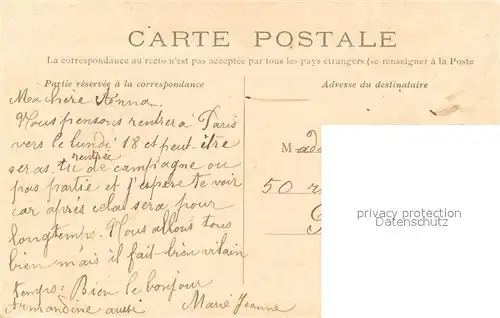 CARTE POSTALE
La correspondance au recto n'est pas acceptée par tous les pays étrangers (se renseigner à la Poste
Partie réservée à la correspondance
Adresse du destinataire
Ma chère Anna.
Nous pensons rentrer à Paris
vers le lundi 18 et peut-être
rentrée
seras-tu de campagne ou
pas partie et j'espère te voir
car après cela sera pour
longtemps. Nous allons tous
bien mais il fait bien vilain
temps: Bien le bonjour
Armandine aussi Marie Jeanne
Mad
50 r
privacy protection
Datenschutz